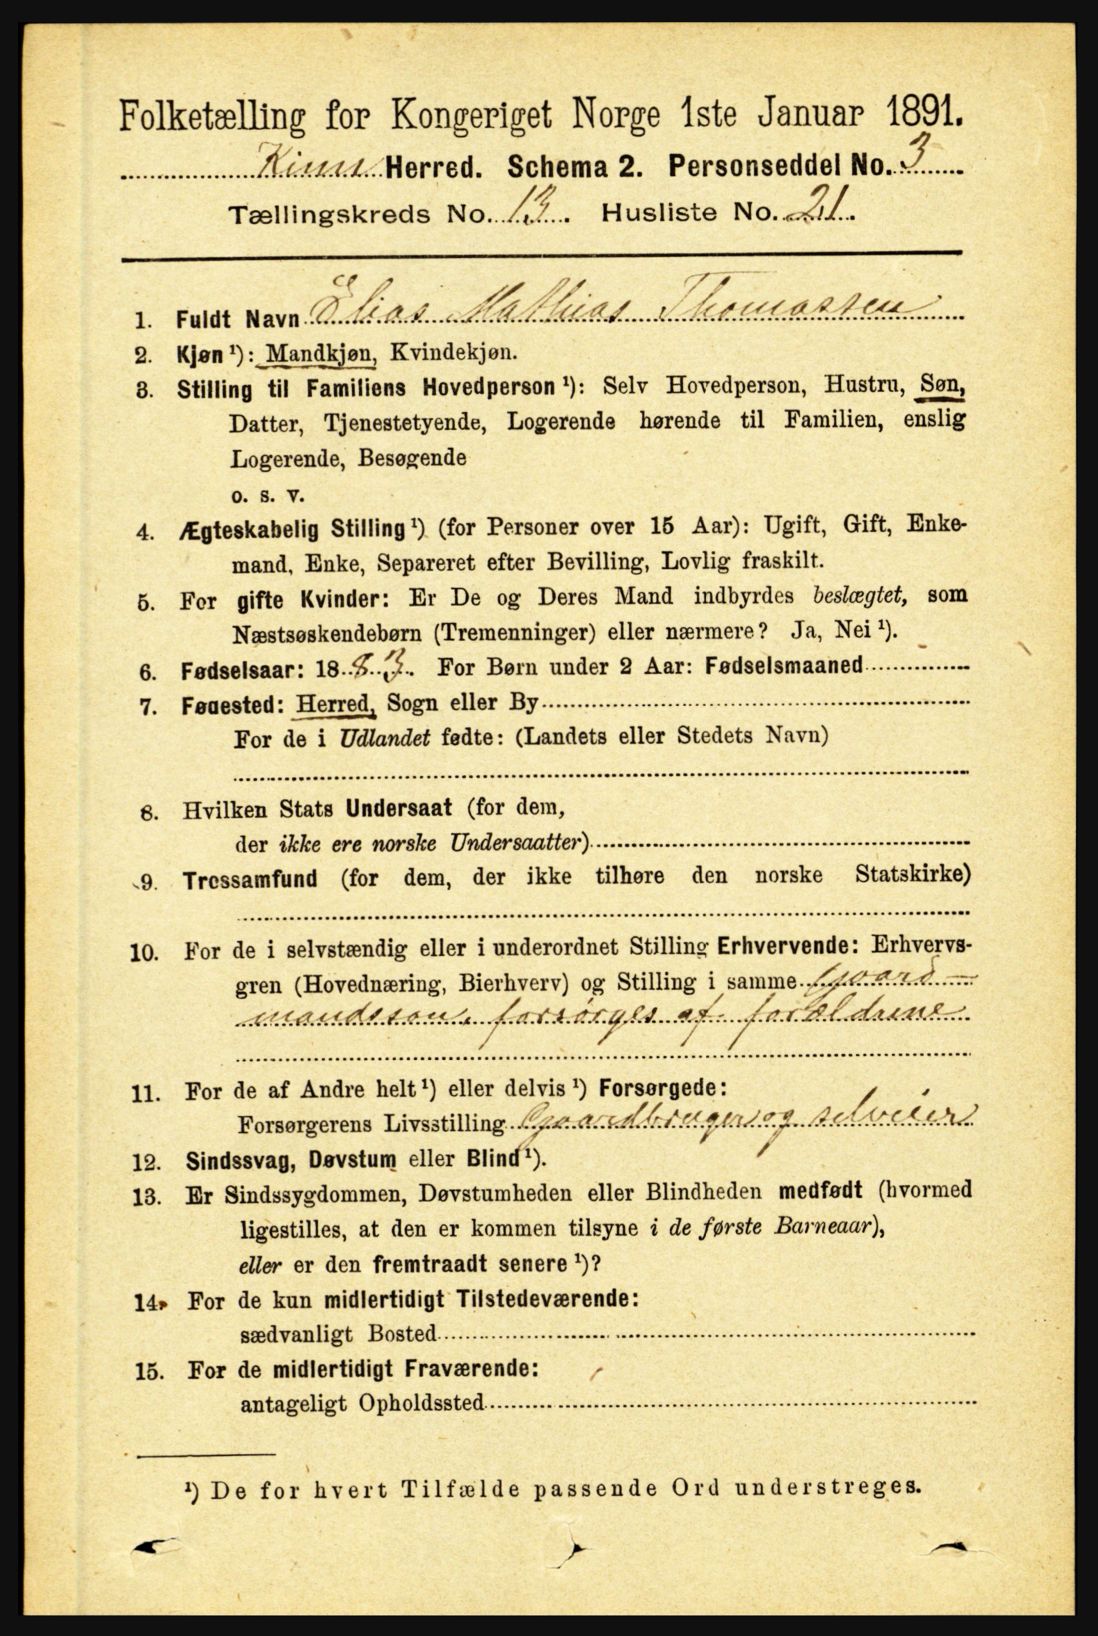 Folketælling for Kongeriget Norge 1ste Januar 1891.
Kinn Herred. Schema 2. Personseddel No. 3
Tællingskreds No. 13. Husliste No. 21.
1. Fuldt Navn Elias Mathias Thomassen
2. Kjøn ¹): Mandkjøn, Kvindekjøn.
3. Stilling til Familiens Hovedperson ¹): Selv Hovedperson, Hustru, Søn,
Datter, Tjenestetyende, Logerende hørende til Familien, enslig
Logerende, Besøgende
o. s. v.
4. Ægteskabelig Stilling ¹) (for Personer over 15 Aar): Ugift, Gift, Enke-
mand, Enke, Separeret efter Bevilling, Lovlig fraskilt.
5. For gifte Kvinder: Er De og Deres Mand indbyrdes beslægtet, som
Næstsøskendebørn (Tremenninger) eller nærmere? Ja, Nei ¹).
6. Fødselsaar: 1883. For Børn under 2 Aar: Fødselsmaaned
7. Fødested: Herred, Sogn eller By
For de i Udlandet fødte: (Landets eller Stedets Navn)
8. Hvilken Stats Undersaat (for dem,
der ikke ere norske Undersaatter)
9. Trossamfund (for dem, der ikke tilhøre den norske Statskirke)
10. For de i selvstændig eller i underordnet Stilling Erhvervende: Erhvervs-
gren (Hovednæring, Bierhverv) og Stilling i samme Gaard-
mandssøn, forsørges af forældrene
11. For de af Andre helt ¹) eller delvis ¹) Forsørgede:
Forsørgerens Livsstilling Gaardbruger og selveier
12. Sindssvag, Døvstum eller Blind ¹).
13. Er Sindssygdommen, Døvstumheden eller Blindheden medfødt (hvormed
ligestilles, at den er kommen tilsyne i de første Barneaar),
eller er den fremtraadt senere ¹)?
14. For de kun midlertidigt Tilstedeværende:
sædvanligt Bosted
15. For de midlertidigt Fraværende:
antageligt Opholdssted
¹) De for hvert Tilfælde passende Ord understreges.